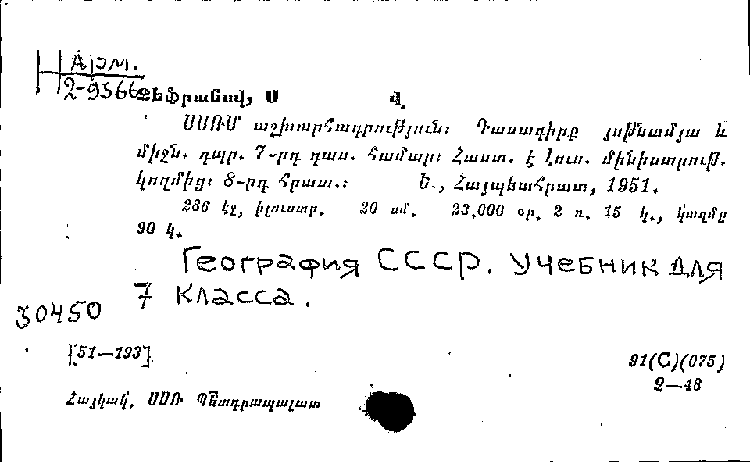 Арм.
2-9566
Չեֆրանով, Ս վ.
ՍՍՌՄ աշխարհագրություն։ Դասագիրք յոթնամյա և
միջն. դպր. 7-րդ դաս. համար։ Հաստ. է Լուս. մինիստրութ.
կողմից։ 8-րդ հրատ.։ Ե., Հայպետհրատ, 1951.
236 էջ, իլյուստր. 20 սմ. 23,000 օր. 2 ռ. 15 կ., կազմը
90 կ.
География СССР. Учебник для
7 класса.
30450
[51—193]
91(С)(075)
Չ—48
Հայկակ. ՍՍՌ Պետգրապալատ